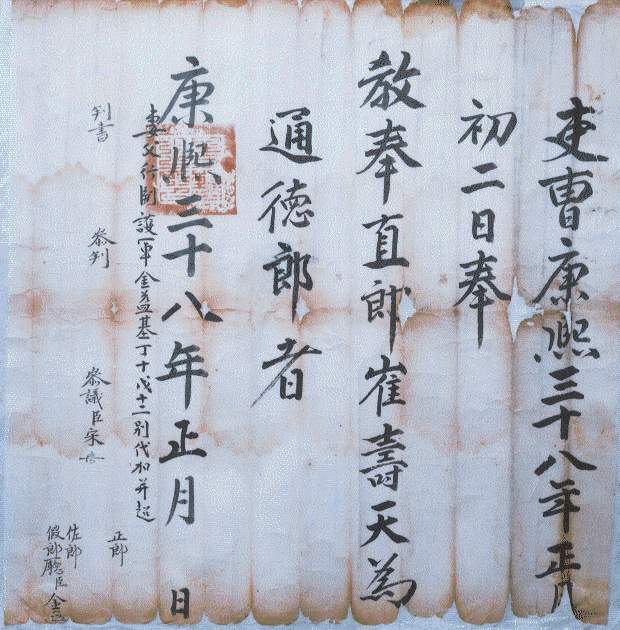 吏曹康熙三十八年正月
初二日奉
教奉直郎崔壽天為
通德郎者
康熙三十八年正月 日
妻父行副護軍金益基丁十戊十二別代加并超
判書 叅判 叅議臣宋
正郎
佐郎
假郎廳臣金